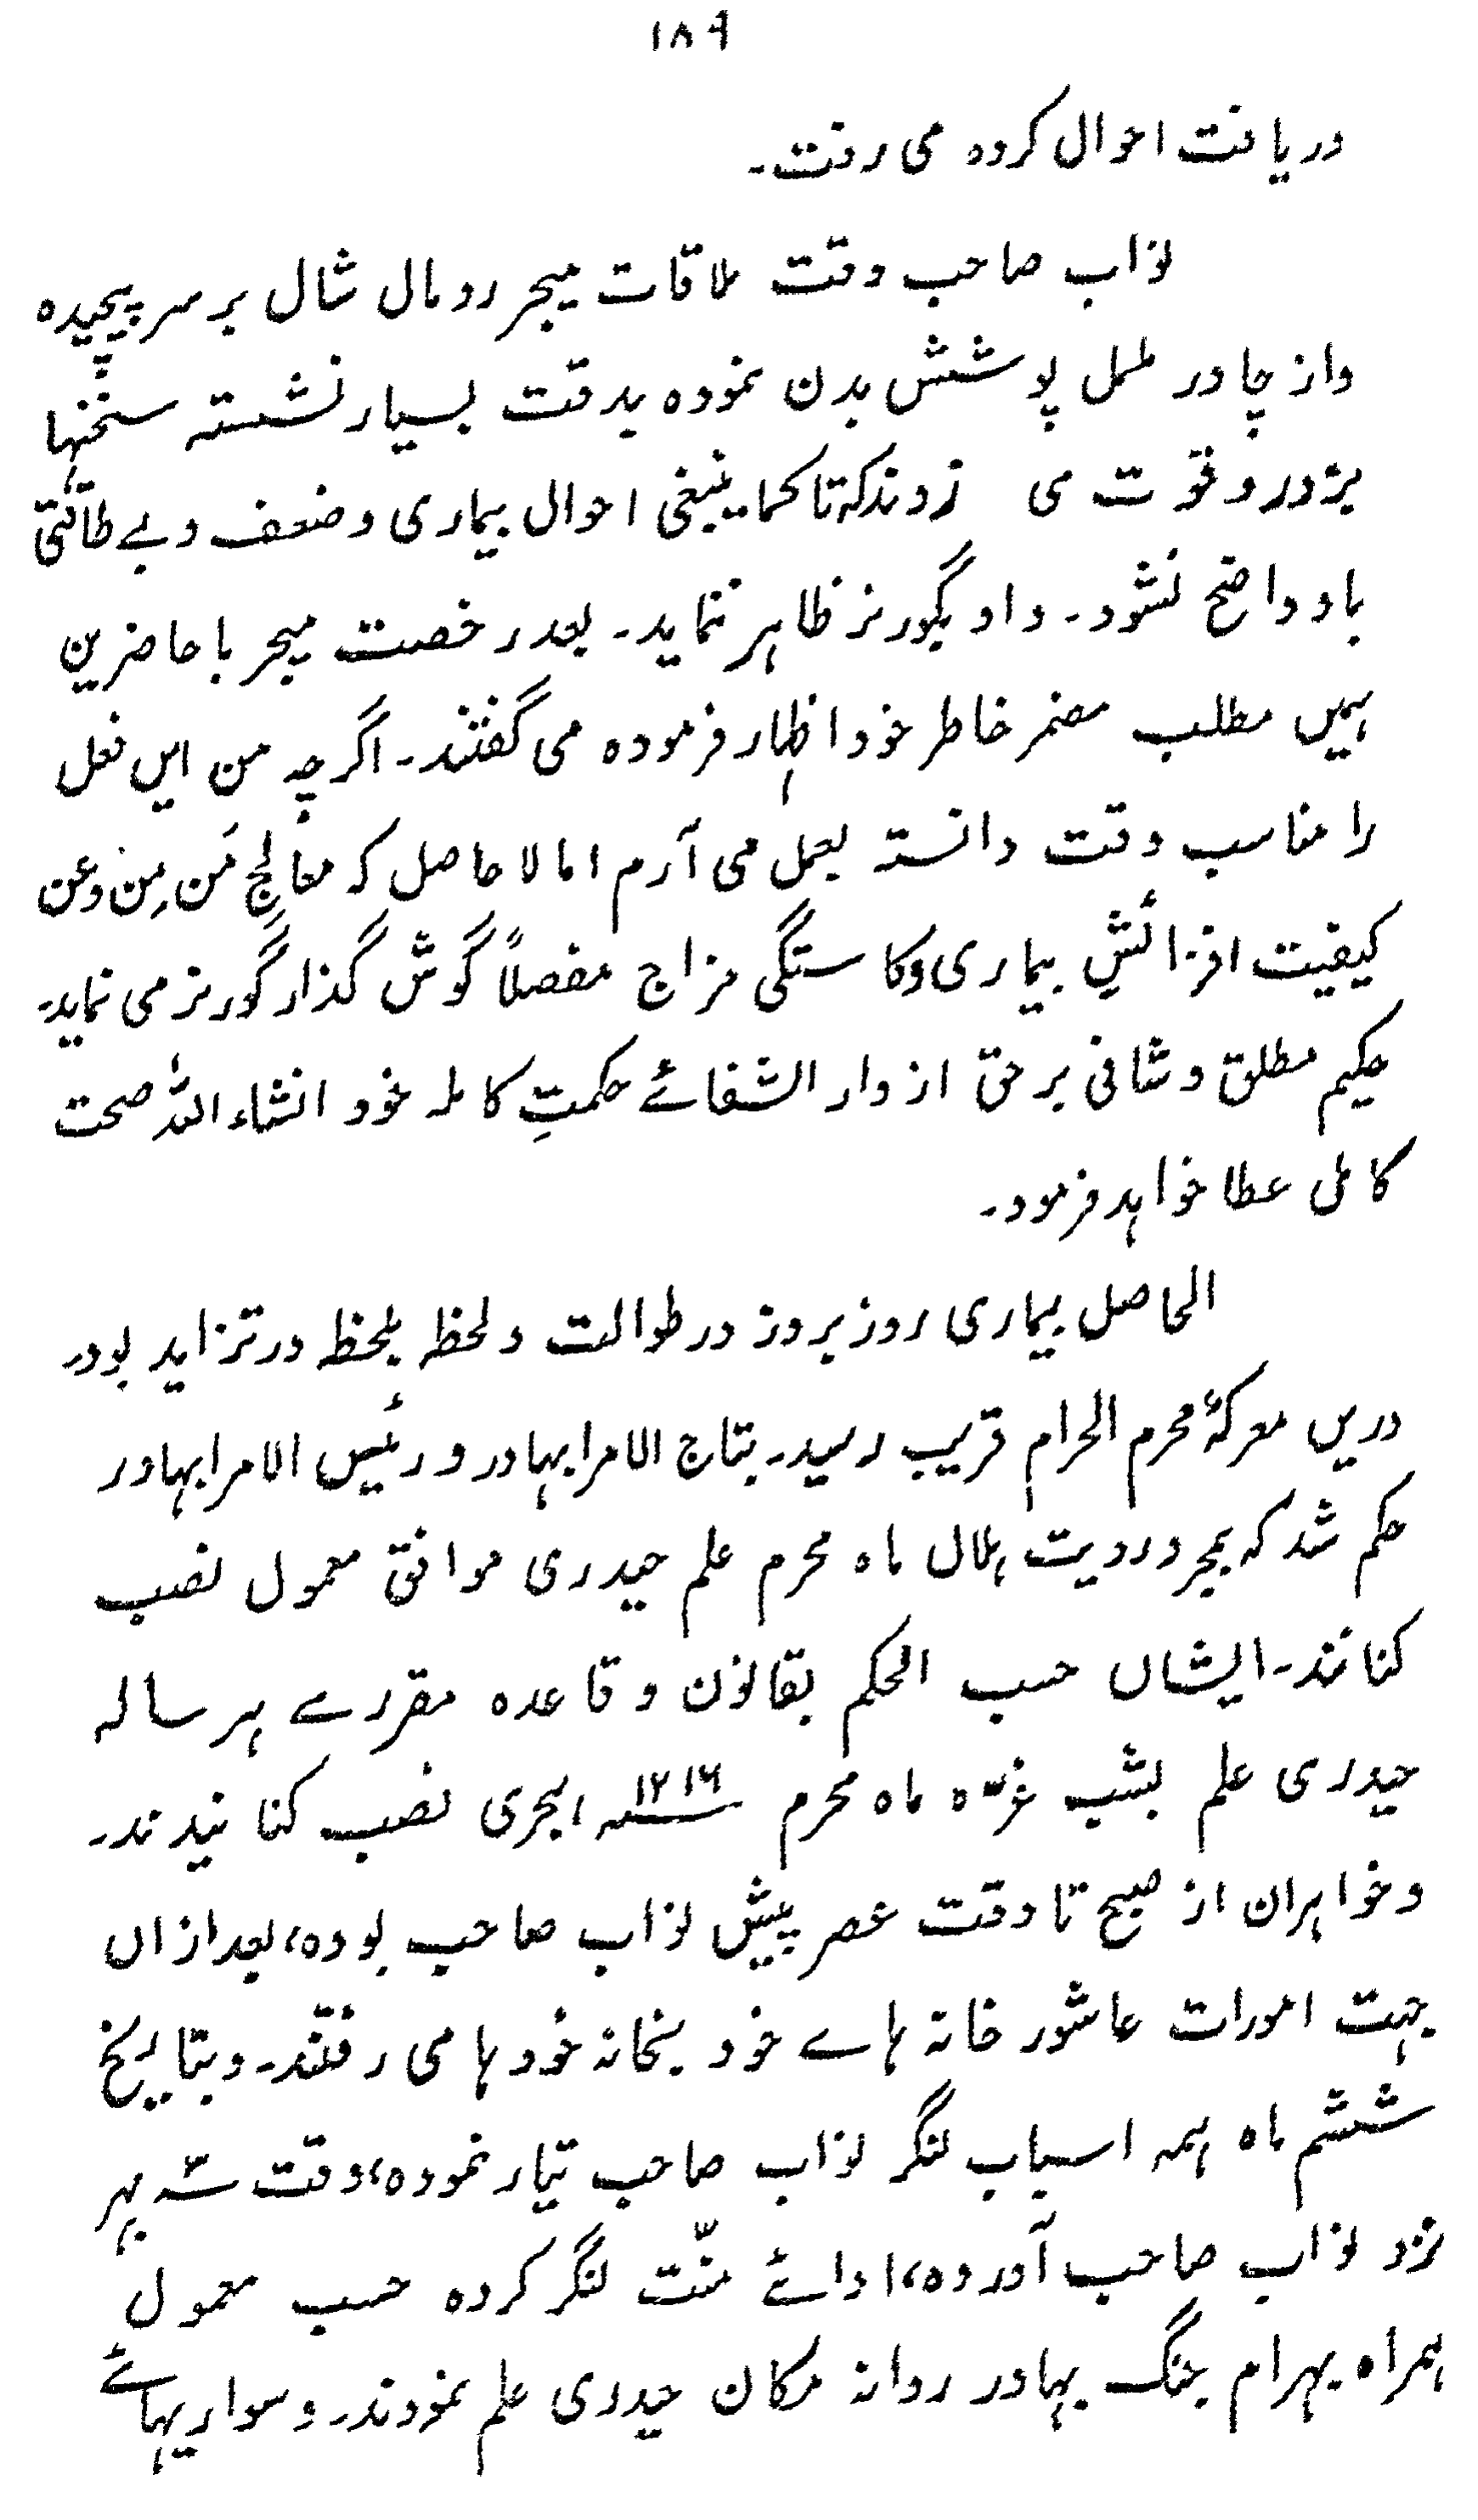 ۱۸۹
دریافت احوال کرده می رفت۔
نواب صاحب وقت ملاقات میجر رومال شال بر سر پیچیده
واز چادر ململ پوشش بدن نموده بدقت بسیار نشسته سخنها
بزور و قوت می زدند که تا کماینبغی احوال بیماری و ضعف و بے طاقتی
باو واضح نشود۔ واو بگورنر ظاهر ننماید۔ بعد رخصت میجر با حاضرین
ہمیں مطلب مضمر خاطر خود اظہار فرموده می گفتند۔ اگرچہ من ایں فعل
را مناسب وقت دانستہ بعمل می آرم اما لاحاصل کہ معالج مَن مِن وعن
کیفیت افزائشِ بیماری وکاستگی مزاج مفصلاً گوش گذار گورنر می نماید۔
حکیم مطلق و شافی برحق از دار الشفائے حکمتِ کاملہ خود انشاء اللہ صحت
کامل عطا خواہد فرمود۔
الحاصل بیماری روز بروز در طوالت و لحظہ بلحظہ در تزاید بود۔
دریں معرکۂ محرم الحرام قریب رسید۔ بتاج الامرا بہادر و رئیس الامرا بہادر
حکم شد کہ بمجرد رویت ہلال ماہ محرم علم حیدری موافق معمول نصب
کنانند۔ ایشاں حسب الحکم بقانون و قاعدہ مقررے ہر سالہ
حیدری علم بشب غرّہ ماہ محرم ۱۲۱۶ ہجری نصب کنانیدند۔
و خواہران از صبح تا وقت عصر پیش نواب صاحب بودہ، بعد ازاں
جہت امورات عاشور خانہ ہاے خود بخانہ خودہا می رفتند۔ و بتاریخ
ششم ماہ ہمہ اسباب لنگر نواب صاحب تیار نمودہ، وقت سہ پہر
نزد نواب صاحب آوردہ، ادائے منّت لنگر کردہ حسب معمول
ہمراہ بہرام جنگ بہادر روانہ مکان حیدری علم نمودند۔ و سواریہائے